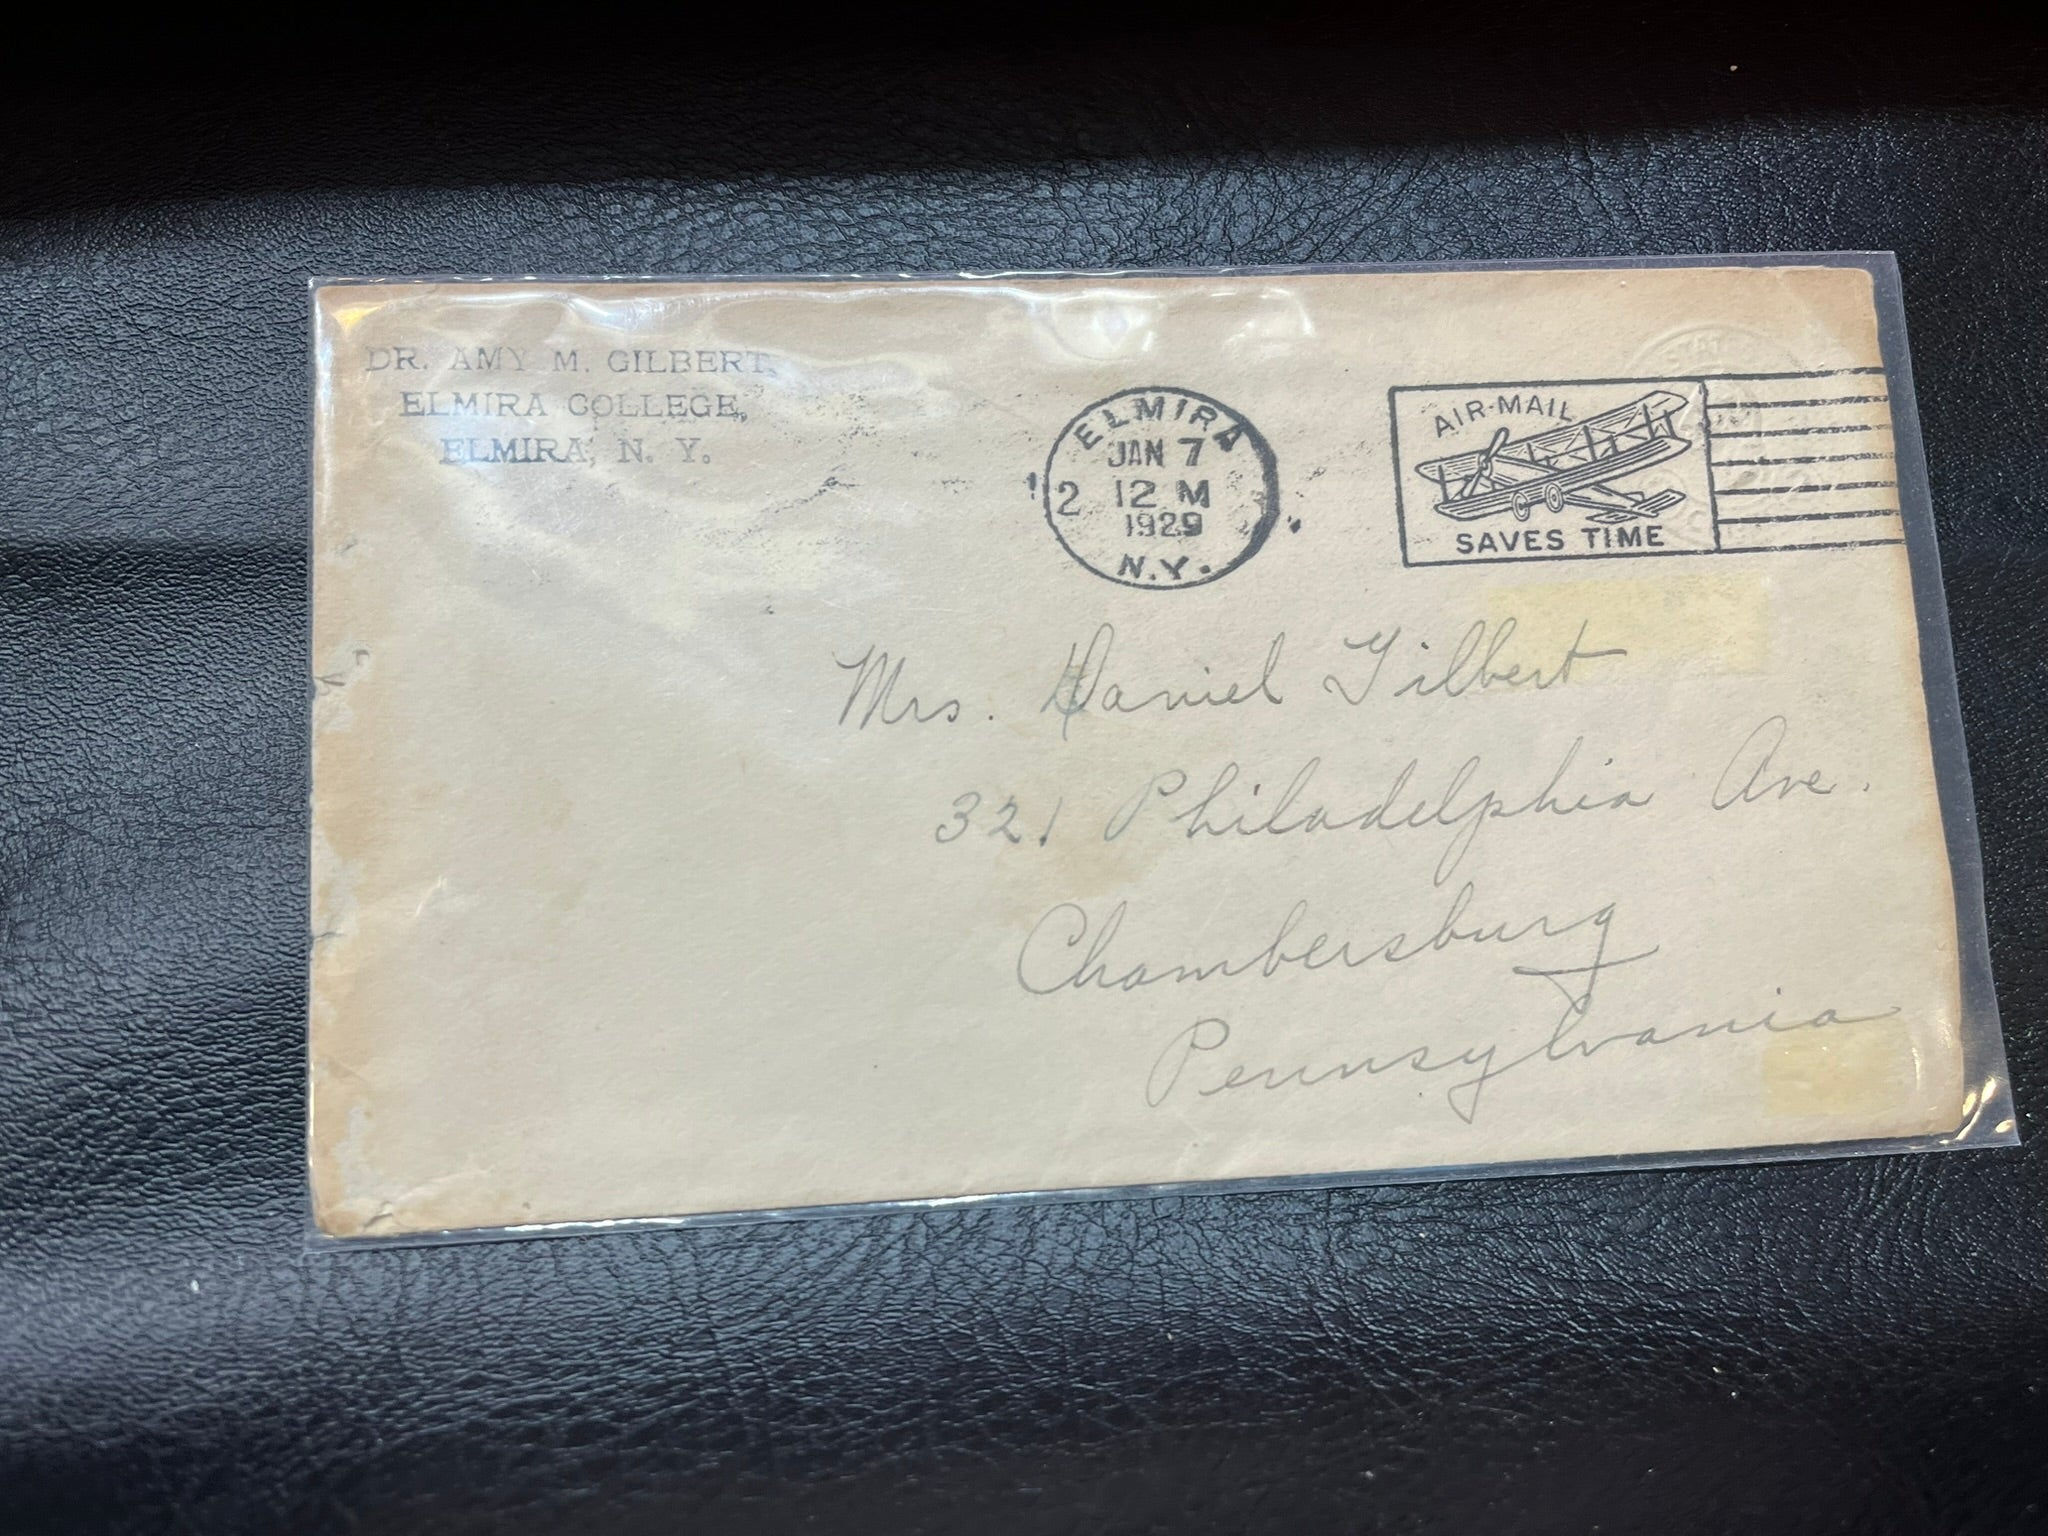 DR. AMY M. GILBERT,
ELMIRA COLLEGE,
ELMIRA, N. Y.
ELMIRA
JAN 7
2 12 M
1929
N.Y.
AIR-MAIL
SAVES TIME
Mrs. Daniel Gilbert
321 Philadelphia Ave.
Chambersburg
Pennsylvania